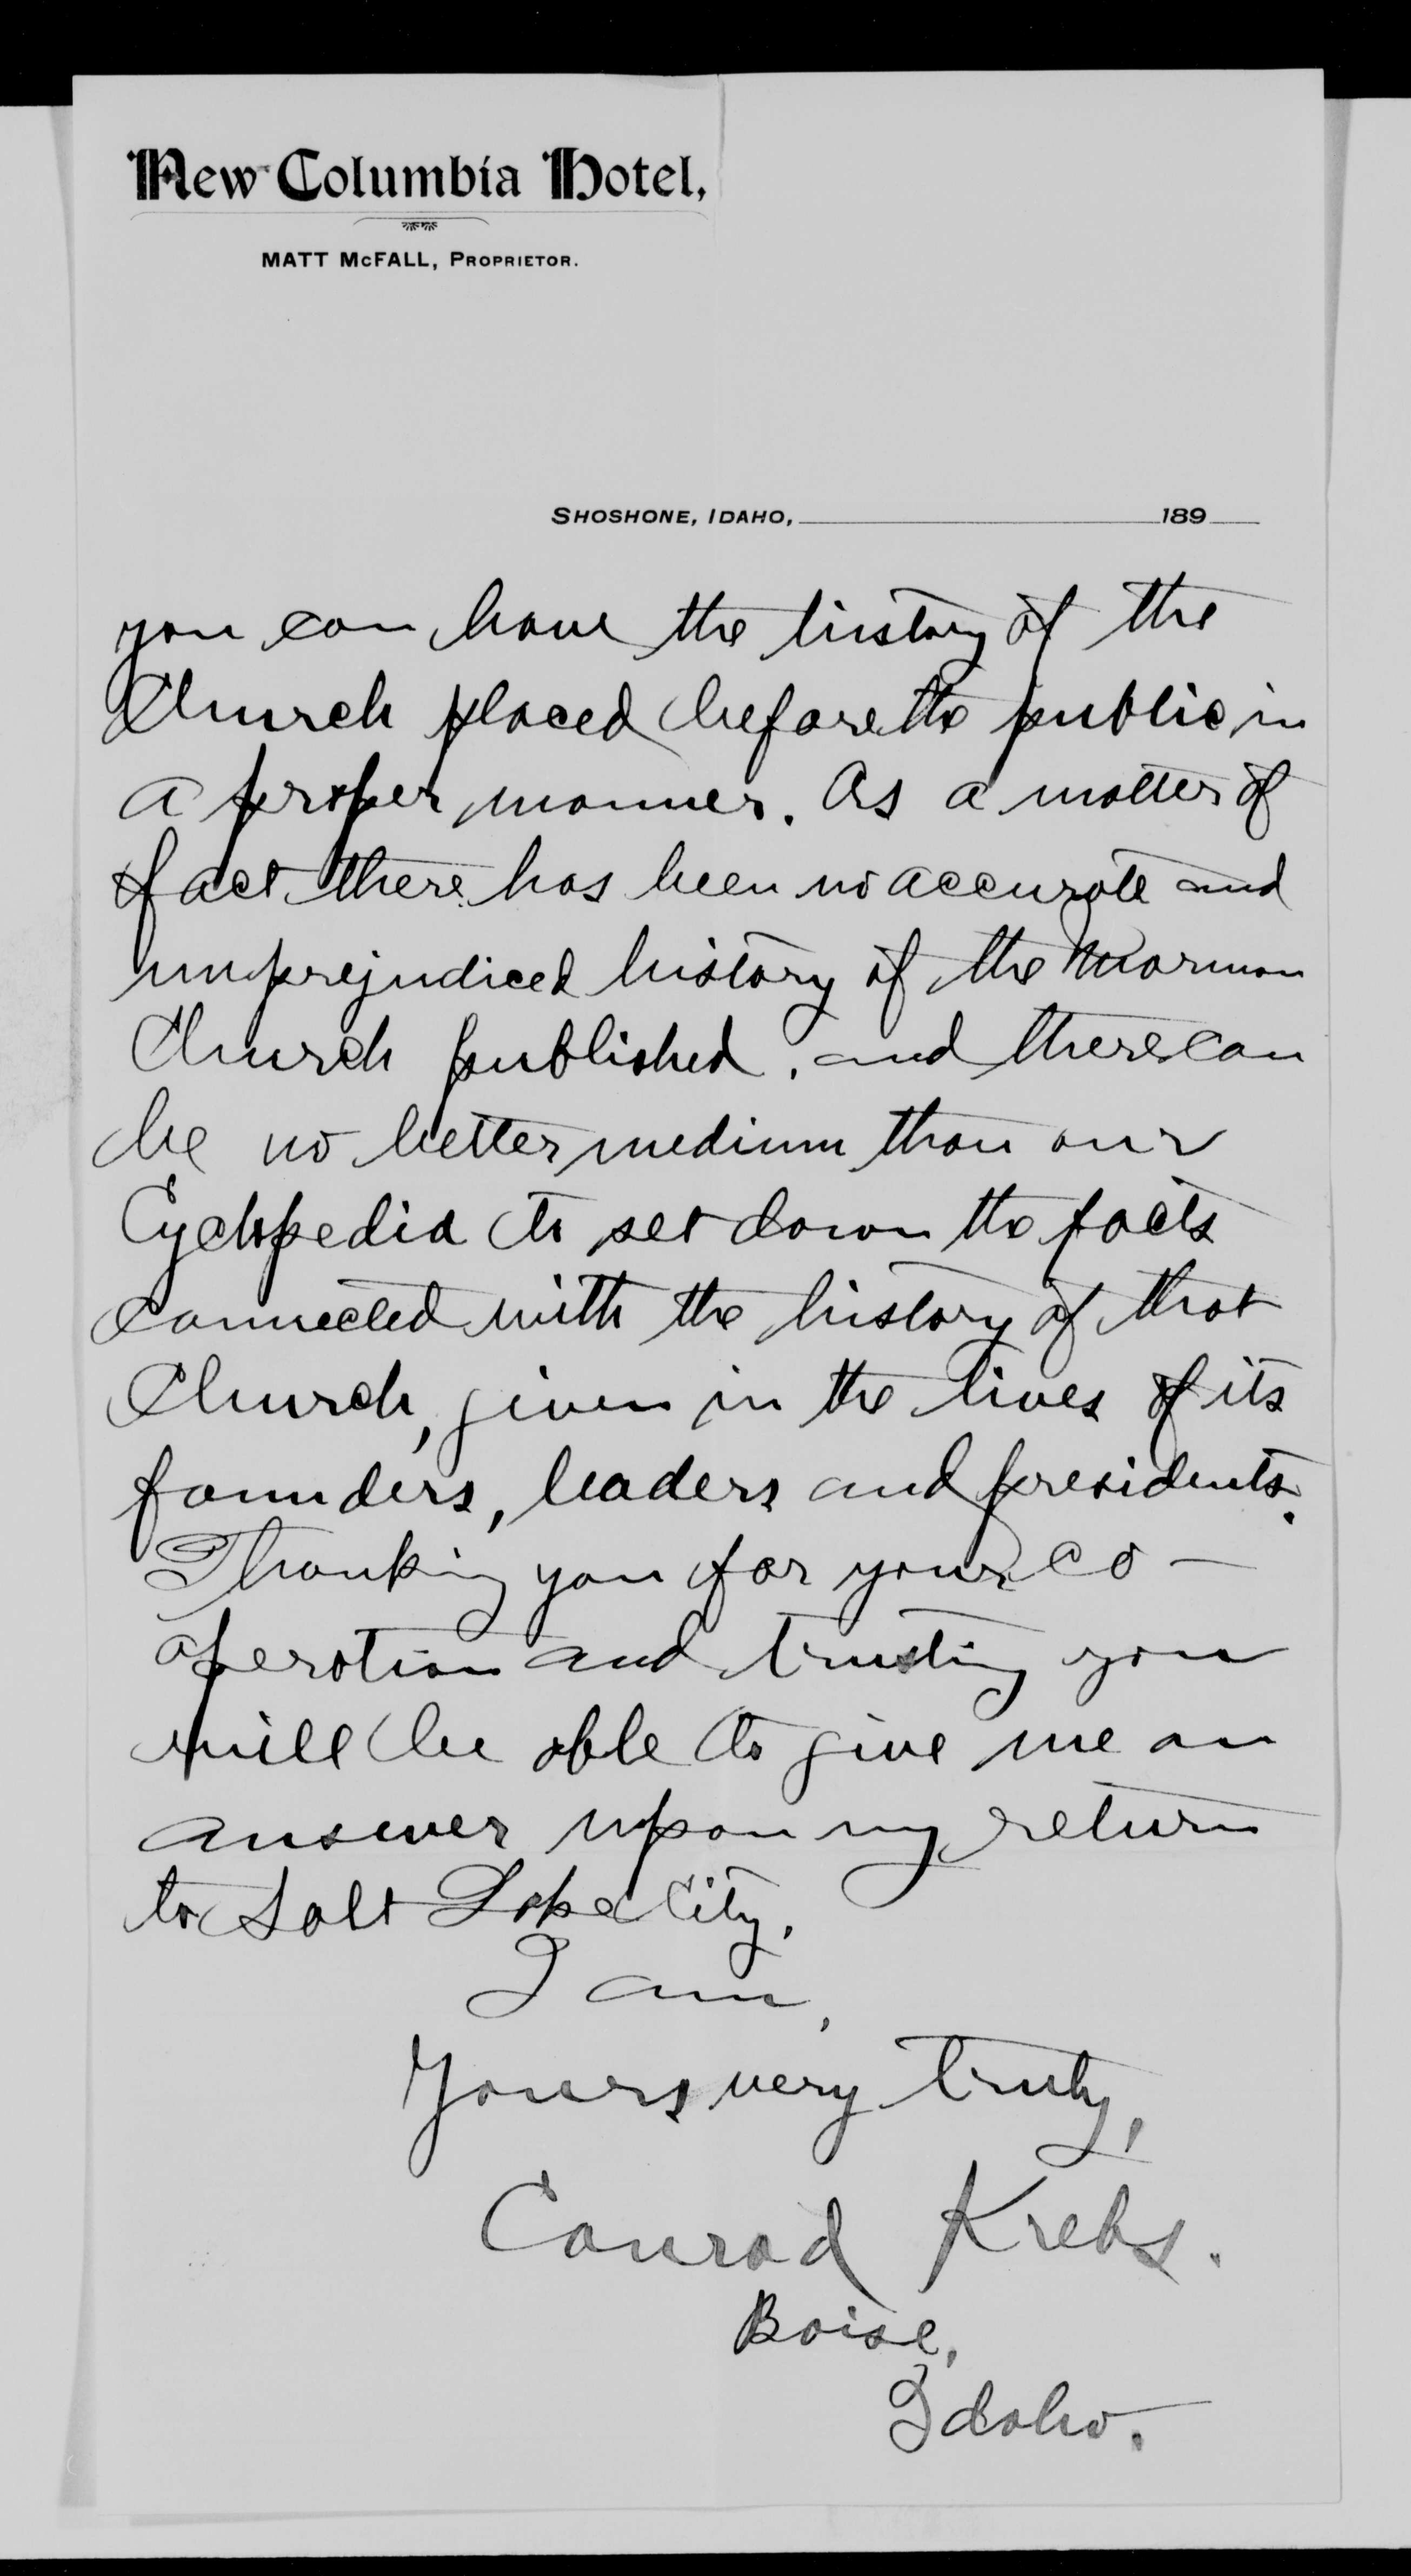 New Columbia Hotel,
MATT McFALL, PROPRIETOR.
SHOSHONE, IDAHO, 189
you can have the history of the
Church placed before the public in
a proper manner. As a matter of
fact there has been no accurate and
unprejudiced history of the Mormon
Church published, and there can
be no better medium than our
Cyclopedia to set down the facts
connected with the history of that
Church, given in the lives of its
founders, leaders and presidents.
Thanking you for your co-
operation and trusting you
will be able to give me an
answer upon my return
to Salt Lake City,
I am,
Yours very truly,
Conrad Krebs.
Boise,
Idaho.